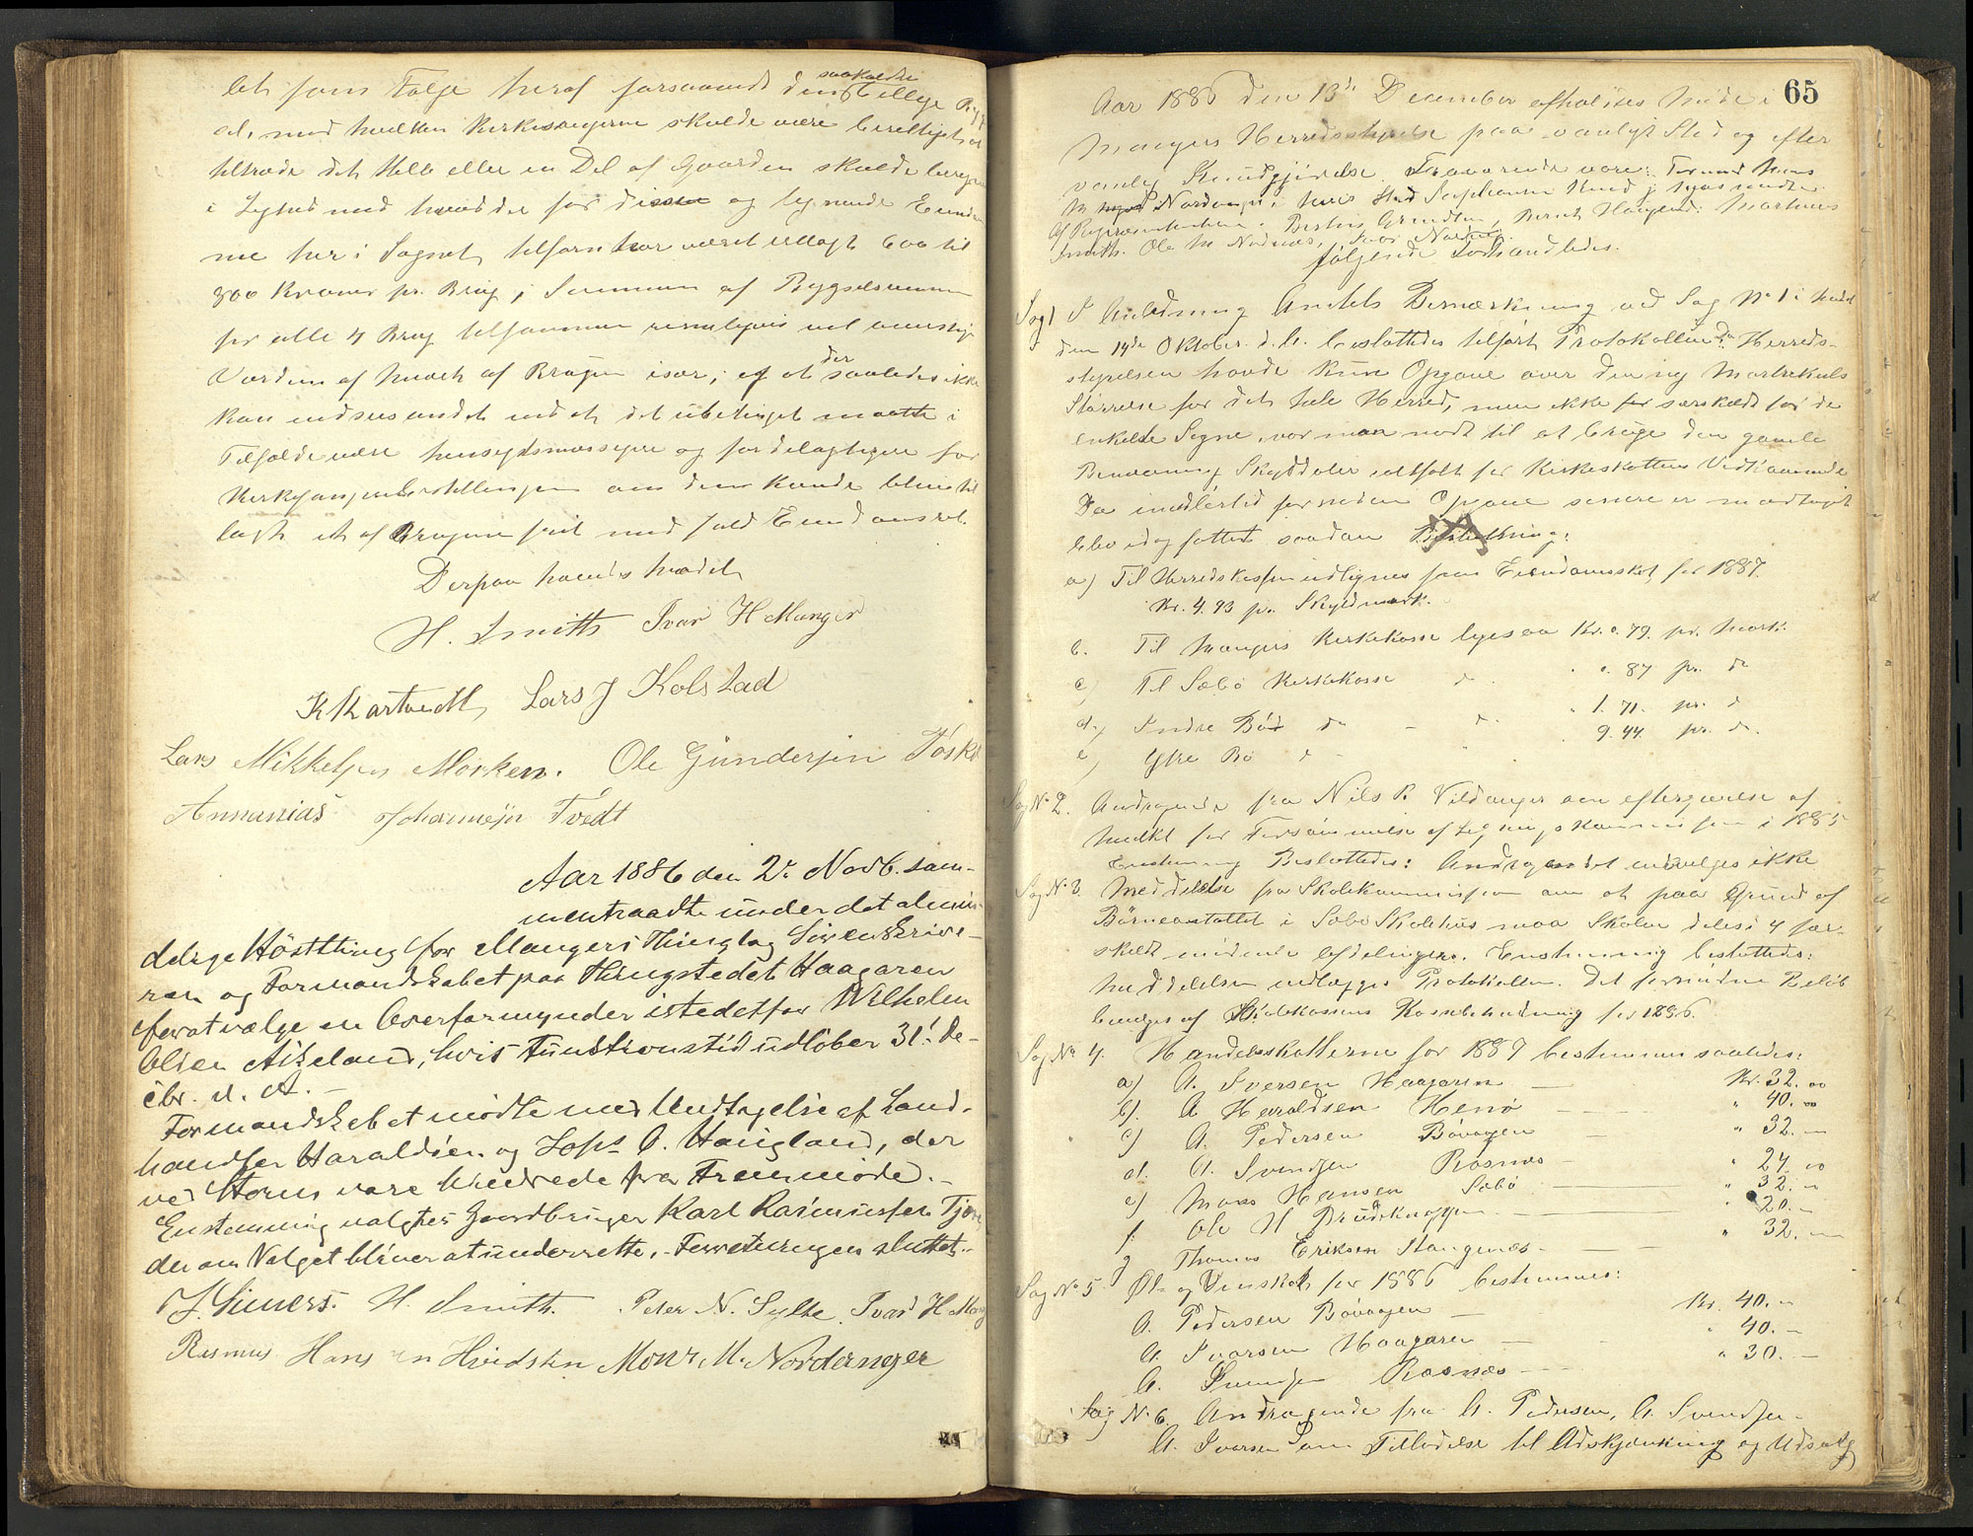 let som Følge heraf forsaavidt den saakaldte
tiltræde det Hele eller en Del af Gaarden skulde
i Lighed med hvad der for disse og lignende
me her i Sognet tilforn har været udlagt 600 til
800 Kroner pr. Brug, i Summen af Bygselsummen
for alle 4 Brug tilsammen rimeligvis vil
Værdien af hvert af Brugene især; og at der saaledes ikke
kan indsees andet end at det ubetinget maatte i
Tilfælde være hensigtsmæssigere og fordelagtigere for
om den kunde blive til
lagt et af Brugene frit med fuld Eiendomsret.
Derpaa hævedes Mødet
H. Smith Ivar H Manger
K Kartvedt, Lars J Kolstad
Lars Mikkelsen Morken. Ole Gundersen Toska
Annanias Johannesen Tvedt
Aar 1886 den 2. Novb. sam-
mentraadte under det almin-
delige Høstthing for Mangers Thinglag Sorenskrive-
ren og Formandskabet paa Thingstedet Haagaren
for at vælge en Overformynder istedetfor Wilhelm
Olsen Askeland, hvis Funktionstid udløber 31. De-
cbr. d. A. —
Formandskabet mødte med Undtagelse af Land-
handler Haraldsen og Hougland, der
ved Storm vare hindrede fra Fremmøde. —
Enstemmig valgtes Gaardbruger Karl Rasmussen
der om Valget bliver at underrette. — Forretningen sluttet. —
H. Smith. Peter N. Sylte. Ivar H Mang
Rasmus Hansen Hvidsten Mons M. Nordanger
65
Aar 1886 den 13de December afholdtes Møde i
Mangers Herredsstyrelse paa vanligt Sted og efter
vanlig Kundgjørelse. Fraværende vare: Formd Mons
M Nordanger, i hvis Sted Suppleanten Knud
Af Repræsentanterne: Martinus
Smith. Ole M
følgende forhandledes.
Sag 1 I Anledning Amtets Bemærkning ved Sag No 1 i Møde
den 14de Oktober d. A. besluttedes tilført Protokollen: Da Herreds-
styrelsen havde kun Opgave over den ny Matrikuls
Størrelse for det hele Herred, men ikke for særskildt for de
enkelte Sogne, var man nødt til at bruge den gamle
Benævning Skylddaler ialtfald for Kirkeskattens Vedkommende
Da imidlertid fornøden Opgave senere er modtaget
blev idag fattet saadan Beslutning:
a) Til Herredskassen udlignes som Eiendomsskat for 1887.
Kr. 4.93 pr. Skyldmark.
b. Til Mangers Kirkekasse ligesaa Kr. 0.79. pr. Mark.
c) Til Sæbø Kirkekasse d " 0.87 pr. do
d) Indre Bø do — d. " 1.71. pr. d
e) Ytre Bø d " 9.44 pr. d.
Sag No 2. Andragende fra Nils P. Vildanger om eftergivelse af
Mulkt for Forsømmelse af Ligningskommissionen i 1885
Enstemmig Besluttedes: Andragendet indvilges ikke
Sag No 3. Meddelelse fra Skolekommissionen om at paa Grund af
Børneantallet i Sæbø Skolehus maa Skolen deles i 4 sær-
skildt mødende Afdelinger. Enstemmig besluttedes:
Meddelelsen vedlægges Protokollen. Det fornødne Beløb
bevilges af Skolekassens Kassebeholdning for 1886.
Sag No 4. Handelsskatterne for 1887 bestemmes saaledes:
a) A. Iversen Haagaren — Kr. 32.00
b). A Haraldsen Herø — " 40.00
c) A. Pedersen Bøvaagen — " 32.—
d. A. Svendsen Rosnæs — " 24.00
e) Mons Hansen Sæbø — " 32.—
f. Ole H Drudknappen — " 20.—
g Thomas Eriksen Stangenæs — " 32.—
Sag No 5. Øl- og Vinskat for 1886 bestemmes:
A. Pedersen Bøvaagen — Kr. 40.—
A. Ivarsen Haagaren — " 40.—
A. Svendsen Rosnæs — " 30.—
Sag No 6. Andragende fra A. Pedersen, A. Svendsen.
A. Ivarsen om Tilladelse til Udskjænkning og Udsalg